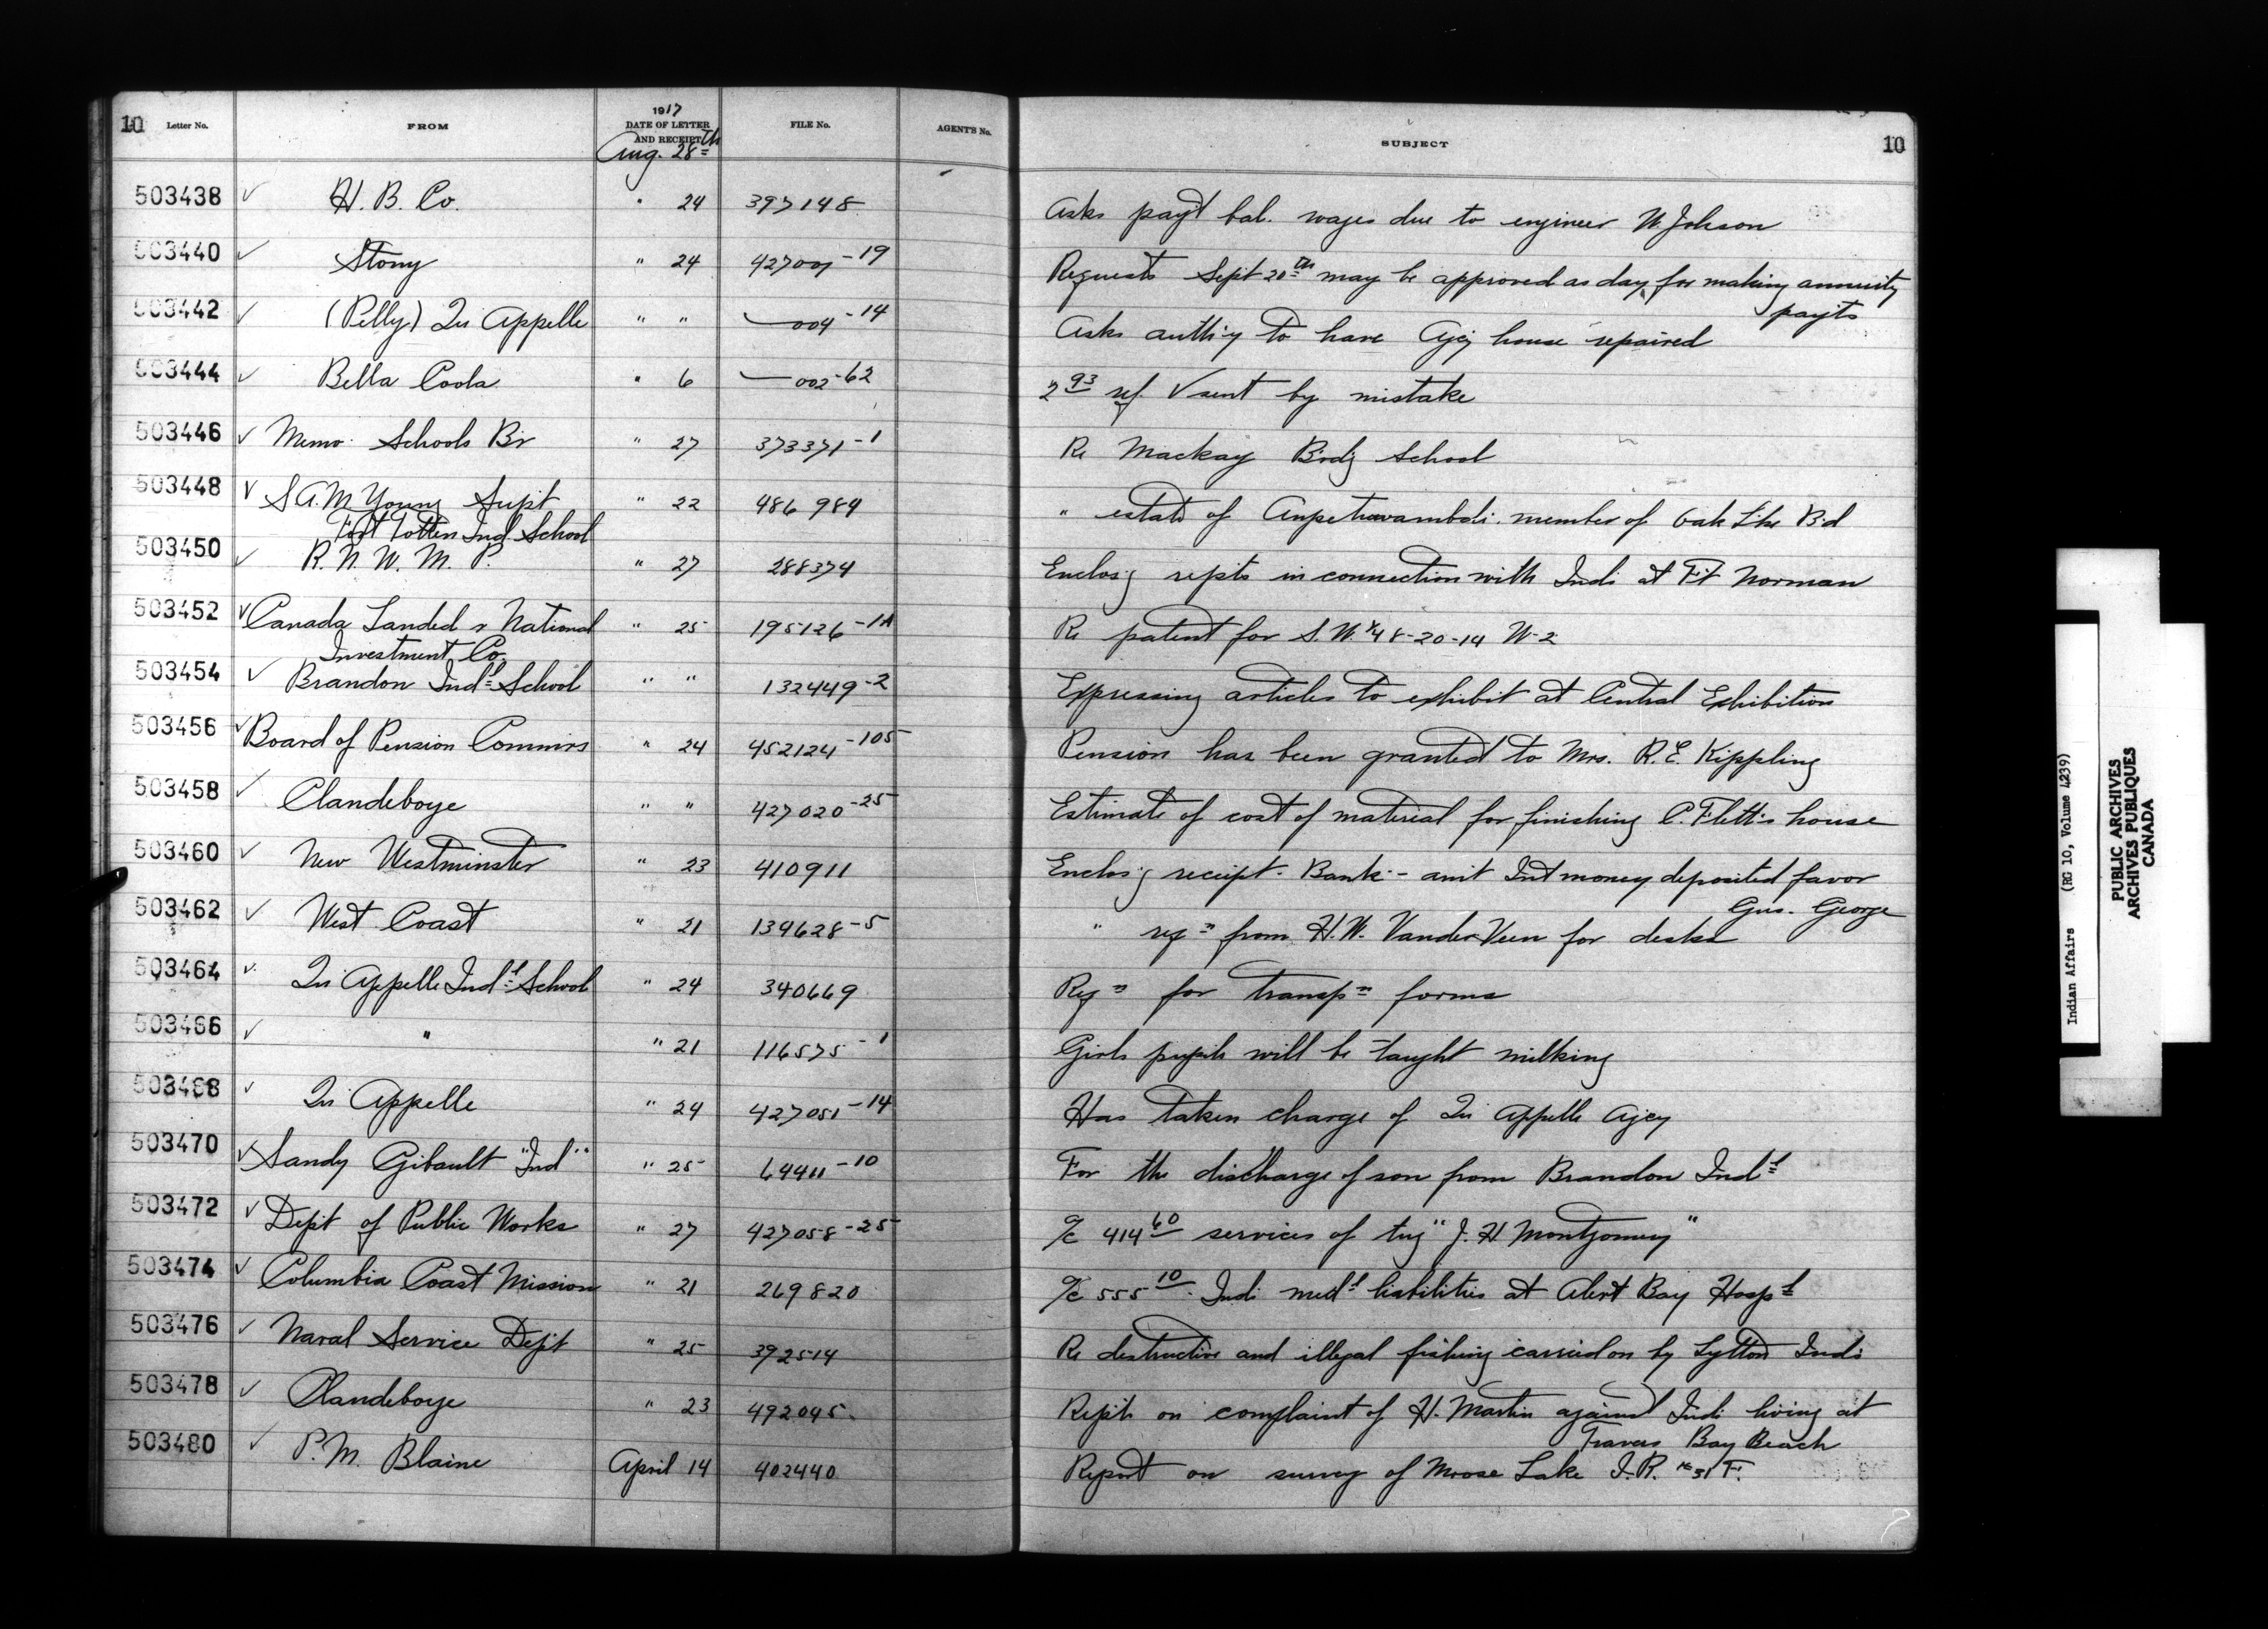 10 Letter No. FROM 1917 DATE OF LETTER AND RECEIPT FILE No. AGENT'S No. SUBJECT 10
Aug. 28th
503438 ✓ H. B. Co. " 24 397148 Asks pay't bal. wages due to engineer W. Johnson
503440 ✓ Stony " 24 427001-19 Requests Sept 20th may be approved as day for making annuity
payts
503442 ✓ (Pelly) Qu Appelle " " — 004-14 Asks auth'y to have Agcy house repaired
503444 ✓ Bella Coola " 6 — 002-62 2 93 ref. ✓ sent by mistake
503446 ✓ Memo Schools Br " 27 373371-1 Re Mackay B'rd'g School
503448 ✓ S.A.M Young Supt " 22 486984 " estate of member of Oak Lke Bd
Fort Totten Ind School
503450 ✓ R. N. W. M. P. " 27 288374 Enclos'g repts in connection with Inds at Ft Norman
503452 ✓ Canada Landed & National " 25 195126-1A Re patent for S.W.¼ 8-20-14 W-2
Investment Co.
503454 ✓ Brandon Indl School " " 132449-2 Expressing articles to exhibit at Central Exhibition
503456 ✓ Board of Pension Commirs " 24 452124-105 Pension has been granted to Mrs. R. E. Kippling
503458 ✓ Clandeboye " " 427020-25 Estimate of cost of material for finishing C. Flett's house
503460 ✓ New Westminster " 23 410911 Enclos'g receipt - Bank - amt Int money deposited favor
Gus. George
503462 ✓ West Coast " 21 134628-5 " reqn from H. W. VanderVeen for desks
503464 ✓ Qu Appelle Indl School " 24 340669 Reqn for transpn forms
503466 ✓ " " 21 116575-1 Girls pupils will be taught milking
503468 ✓ Qu Appelle " 24 427051-14 Has taken charge of Qu Appelle Agcy
503470 ✓ Sandy Gibault "Ind" " 25 64411-10 For the discharge of son from Brandon Indl
503472 ✓ Dept of Public Works " 27 427058-25 a/c 414 60 services of tug "J. H Montgomery"
503474 ✓ Columbia Coast Mission " 21 269820 a/c 555 10 Indi medl liabilities at Alert Bay Hospl
503476 ✓ Naval Service Dept " 25 392514 Re destructive and illegal fishing carried on by Lytton Inds
503478 ✓ Clandeboye " 23 492045 Rep't on complaint of H. Martin against Inds living at
Travers Bay Beach
503480 ✓ P. M. Blaine April 14 402440 Report on survey of Moose Lake I. R. No 31 F.
Indian Affairs (RG 10, Volume 4239)
PUBLIC ARCHIVES
ARCHIVES PUBLIQUES
CANADA